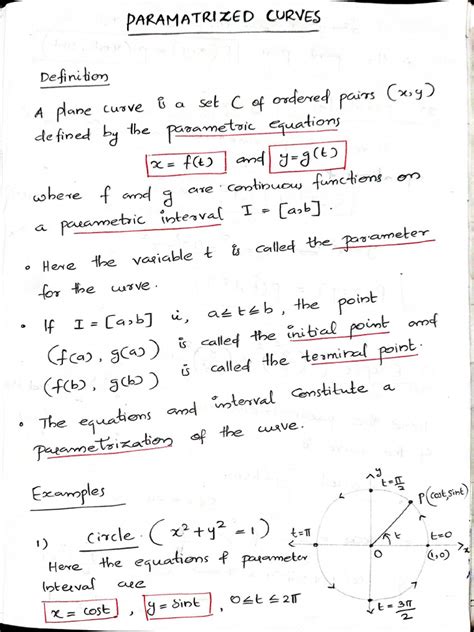 PARAMATRIZED CURVES
Definition
A plane curve is a set C of ordered pairs (x,y)
defined by the parametric equations
x = f(t) and y = g(t)
where f and g are continuous functions on
a parametric interval I = [a,b].
• Here the variable t is called the parameter
for the curve.
• If I = [a,b] ie, a≤t≤b, the point
(f(a), g(a)) is called the initial point and
(f(b), g(b)) is called the terminal point.
• The equations and interval constitute a
parametrization of the curve.
Examples
1) Circle (x² + y² = 1)
Here the equations & parameter
Interval are
x = cost , y = sint , 0 ≤ t ≤ 2π
y
t = π/2
P(cost, sint)
t = π
t
t = 0
O
(1,0)
x
t = 3π/2